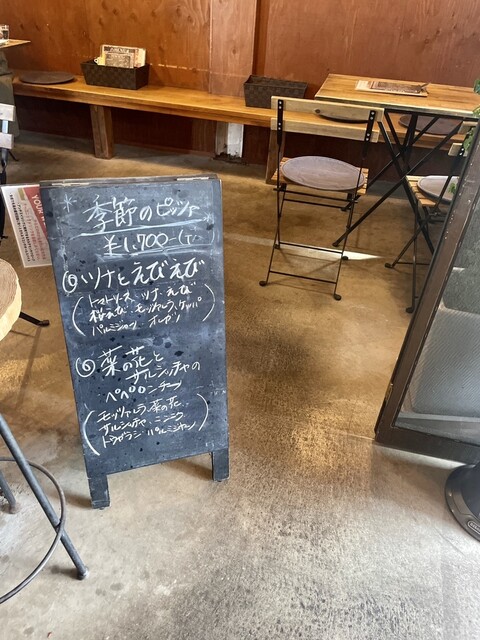 季節のピッツァ
￥1,700-
ツナとえびえび
(トマトソース ツナ・えび
桜えび モッツァレラ、ケッパー
パルミジャン オレガノ)
菜の花と
サルシッチャの
ペペロンチーノ
(モッツァレラ、菜の花、
サルシッチャ ニンニク
トウガラシ パルミジャン)
YOUR